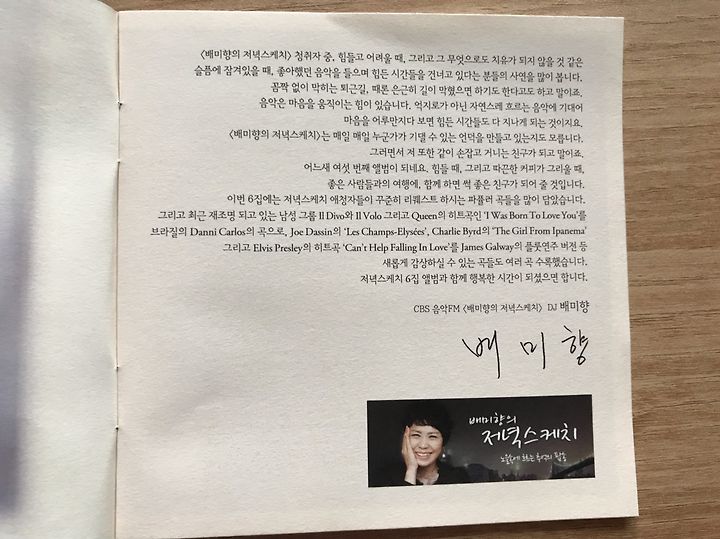 〈배미향의 저녁스케치〉 청취자 중, 힘들고 어려울 때, 그리고 그 무엇으로도 치유가 되지 않을 것 같은
슬픔에 잠겨있을 때, 좋아했던 음악을 들으며 힘든 시간들을 건너고 있다는 분들의 사연을 많이 봅니다.
꼼짝 없이 막히는 퇴근길, 때론 은근히 길이 막혔으면 하기도 한다고도 하고 말이죠.
음악은 마음을 움직이는 힘이 있습니다. 억지로가 아닌 자연스레 흐르는 음악에 기대어
마음을 어루만지다 보면 힘든 시간들도 다 지나게 되는 것이지요.
〈배미향의 저녁스케치〉는 매일 매일 누군가가 기댈 수 있는 언덕을 만들고 있는지도 모릅니다.
그러면서 저 또한 같이 손잡고 거니는 친구가 되고 말이죠.
어느새 여섯 번째 앨범이 되네요. 힘들 때, 그리고 따끈한 커피가 그리울 때,
좋은 사람들과의 여행에, 함께 하면 썩 좋은 친구가 되어 줄 것입니다.
이번 6집에는 저녁스케치 애청자들이 꾸준히 리퀘스트 하시는 파퓰러 곡들을 많이 담았습니다.
그리고 최근 재조명 되고 있는 남성 그룹 Il Divo와 Il Volo 그리고 Queen의 히트곡인 'I Was Born To Love You'를
브라질의 Danni Carlos의 곡으로, Joe Dassin의 'Les Champs-Elysées', Charlie Byrd의 'The Girl From Ipanema'
그리고 Elvis Presley의 히트곡 'Can't Help Falling In Love'를 James Galway의 플룻연주 버전 등
새롭게 감상하실 수 있는 곡들도 여러 곡 수록했습니다.
저녁스케치 6집 앨범과 함께 행복한 시간이 되셨으면 합니다.
CBS 음악FM 〈배미향의 저녁스케치〉 DJ 배미향
배 미 향
배미향의
저녁스케치
노을속에 흐르는 추억의 팝송